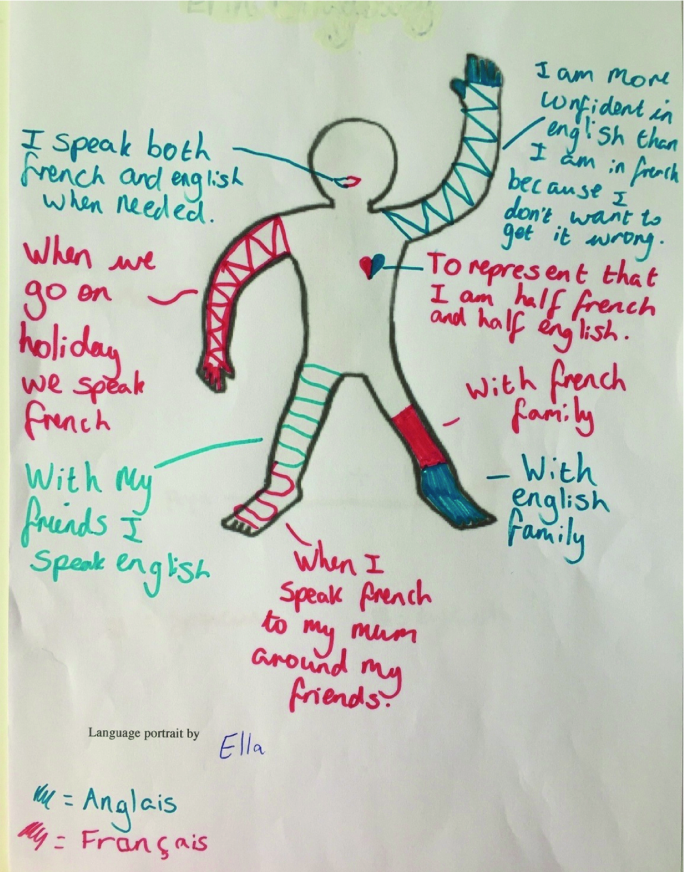 I speak both
french and english
when needed.
I am more
confident in
english than
I am in french
because I
don't want to
get it wrong.
When we
go on
holiday
we speak
french
To represent that
I am half french
and half english.
With french
family
With my
friends I
speak english
With
english
family
When I
speak french
to my mum
around my
friends.
Language portrait by Ella
= Anglais
= Français